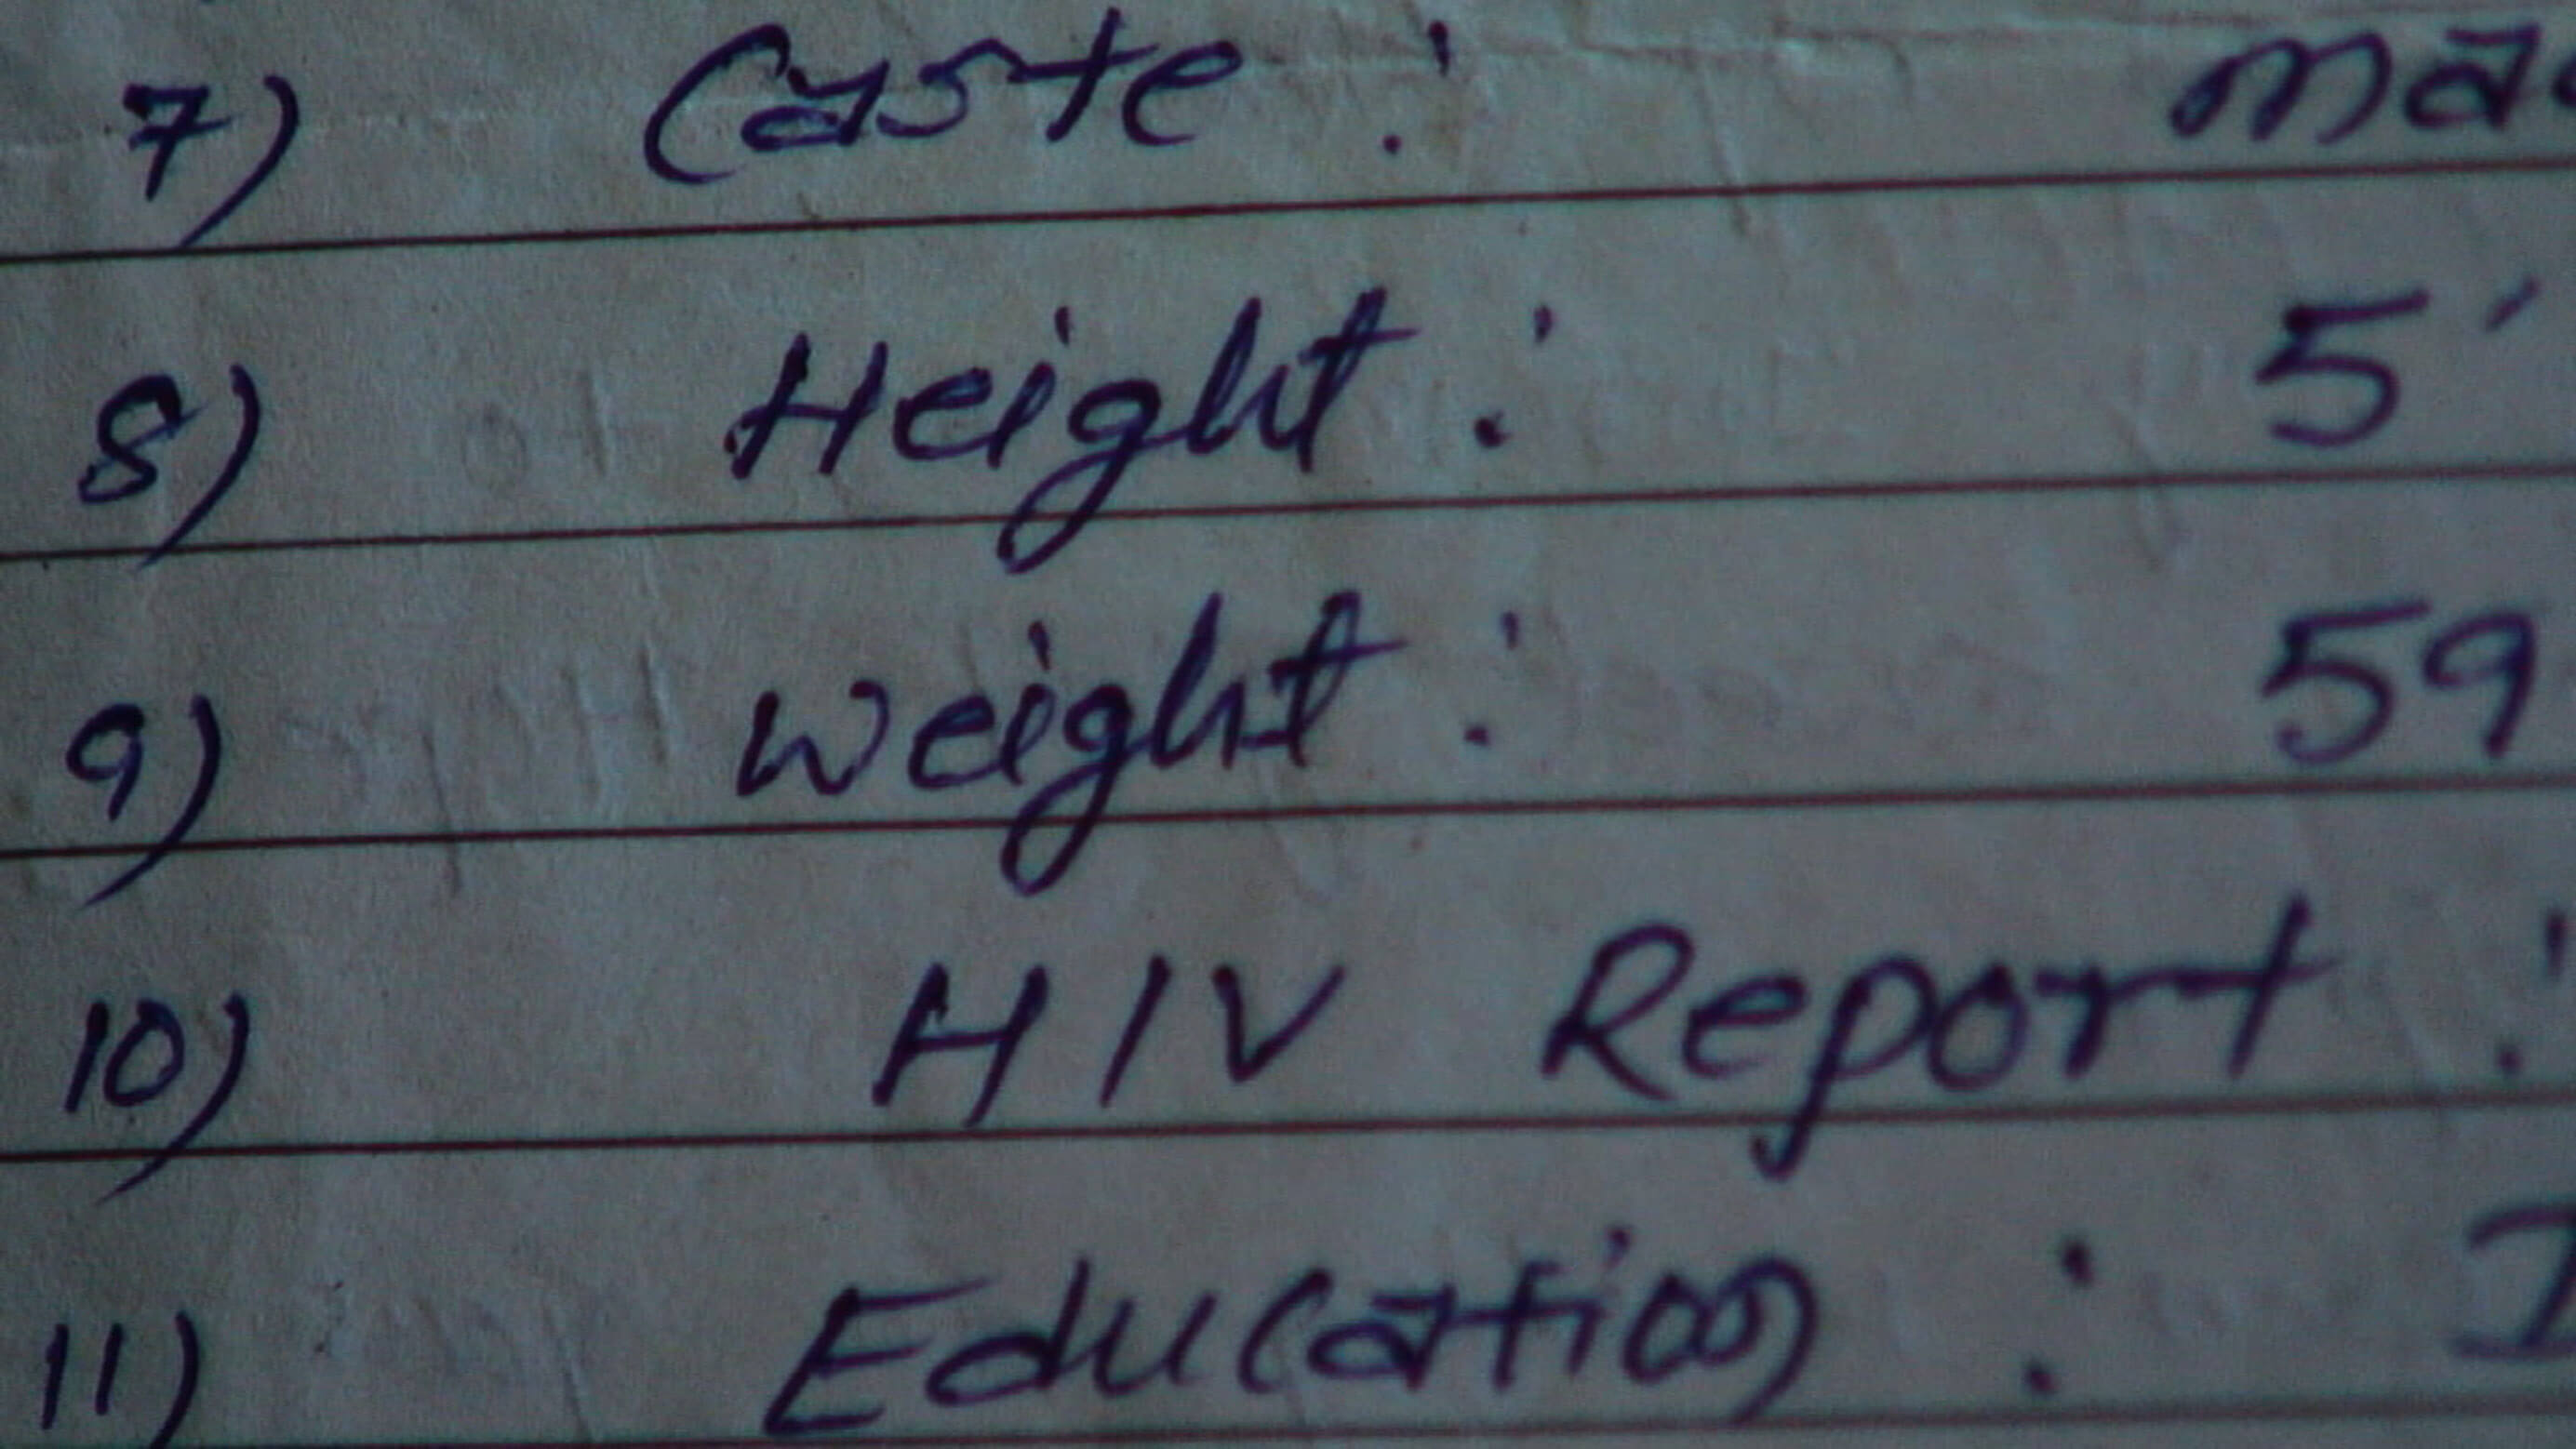 7) Caste : Ma
8) Height : 5'
9) Weight : 59
10) HIV Report :
11) Education :